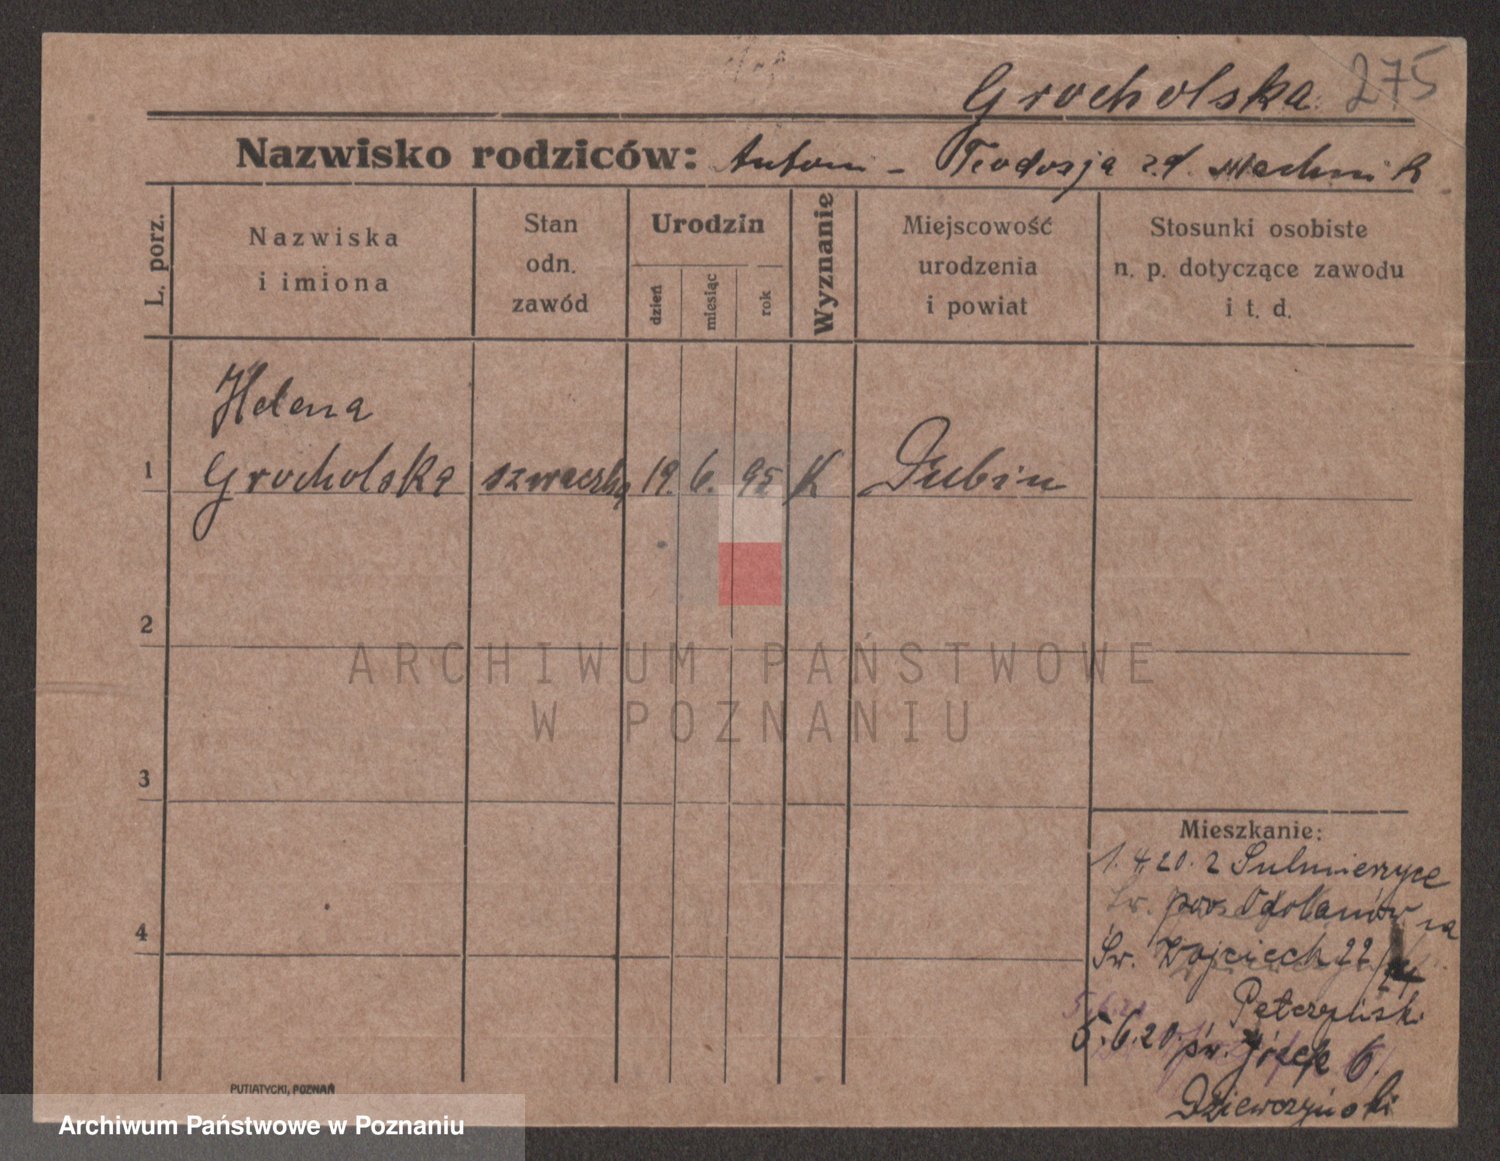 Grocholska 275
Nazwisko rodziców: Antoni - Teodozja z d. Mechnik
L. porz.
Nazwiska
i imiona
Stan
odn.
zawód
Urodzin
dzień
miesiąc
rok
Wyznanie
Miejscowość
urodzenia
i powiat
Stosunki osobiste
n. p. dotyczące zawodu
i t. d.
Helena
1 Grocholska szwaczka 19. 6. 95 K Dubin
2
3
4
Mieszkanie:
1.4.20. z Sulmierzyce
pow. Odolanów na
Św. Wojciech 22
5.6.20
5.6.20 św. Józef 6.
Dziewczyński
PUTIATYCKI, POZNAŃ
ARCHIWUM PAŃSTWOWE
W POZNANIU
Archiwum Państwowe w Poznaniu